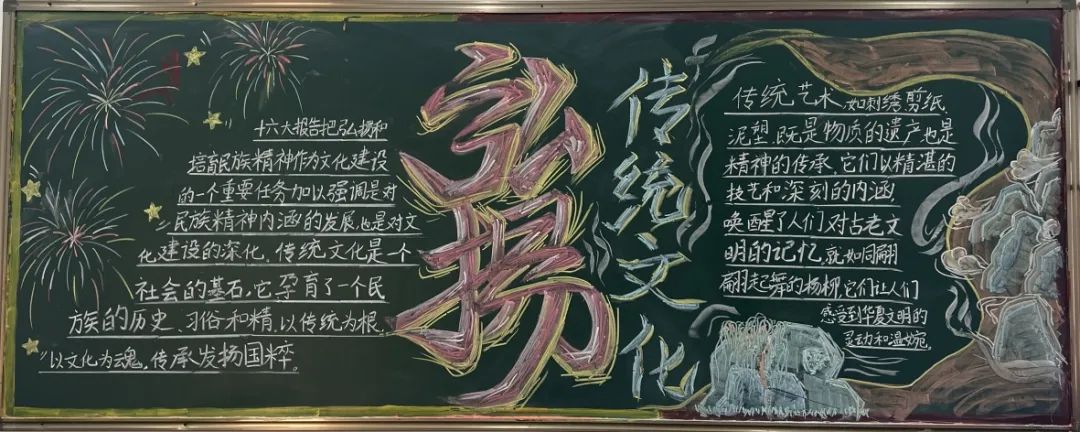 弘扬
传统文化
十六大报告把弘扬和
培育民族精神作为文化建设
的一个重要任务加以强调是对
民族精神内涵的发展,也是对文
化建设的深化,传统文化是一个
社会的基石,它孕育了一个民
族的历史、习俗和精,以传统为根,
以文化为魂,传承发扬国粹。
传统艺术 如刺绣剪纸
泥塑,既是物质的遗产也是
精神的传承,它们以精湛的
技艺和深刻的内涵,
唤醒了人们对古老文
明的记忆,就如同翩
翩起舞的杨柳,它们让人们
感受到华夏文明的
灵动和温婉。